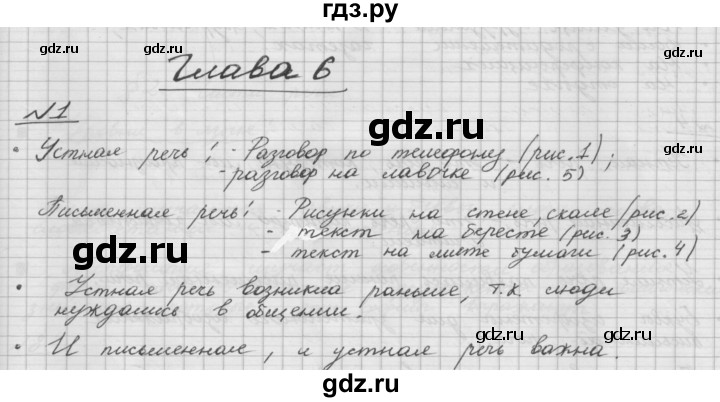 гдз.ру
Глава 6
№1
• Устная речь: - Разговор по телефону (рис. 1);
- разговор на лавочке (рис. 5)
Письменная речь: - Рисунки на стене, скале (рис. 2)
- текст на бересте (рис. 3)
- текст на листе бумаги (рис. 4)
• Устная речь возникла раньше, т.к. люди
нуждались в общении.
• И письменная, и устная речь важна.
gdz.ru
gdz.ru
gdz.ru
gdz.ru
gdz.ru
gdz.ru
gdz.ru
gdz.ru
gdz.ru
gdz.ru
gdz.ru
gdz.ru
gdz.ru
gdz.ru